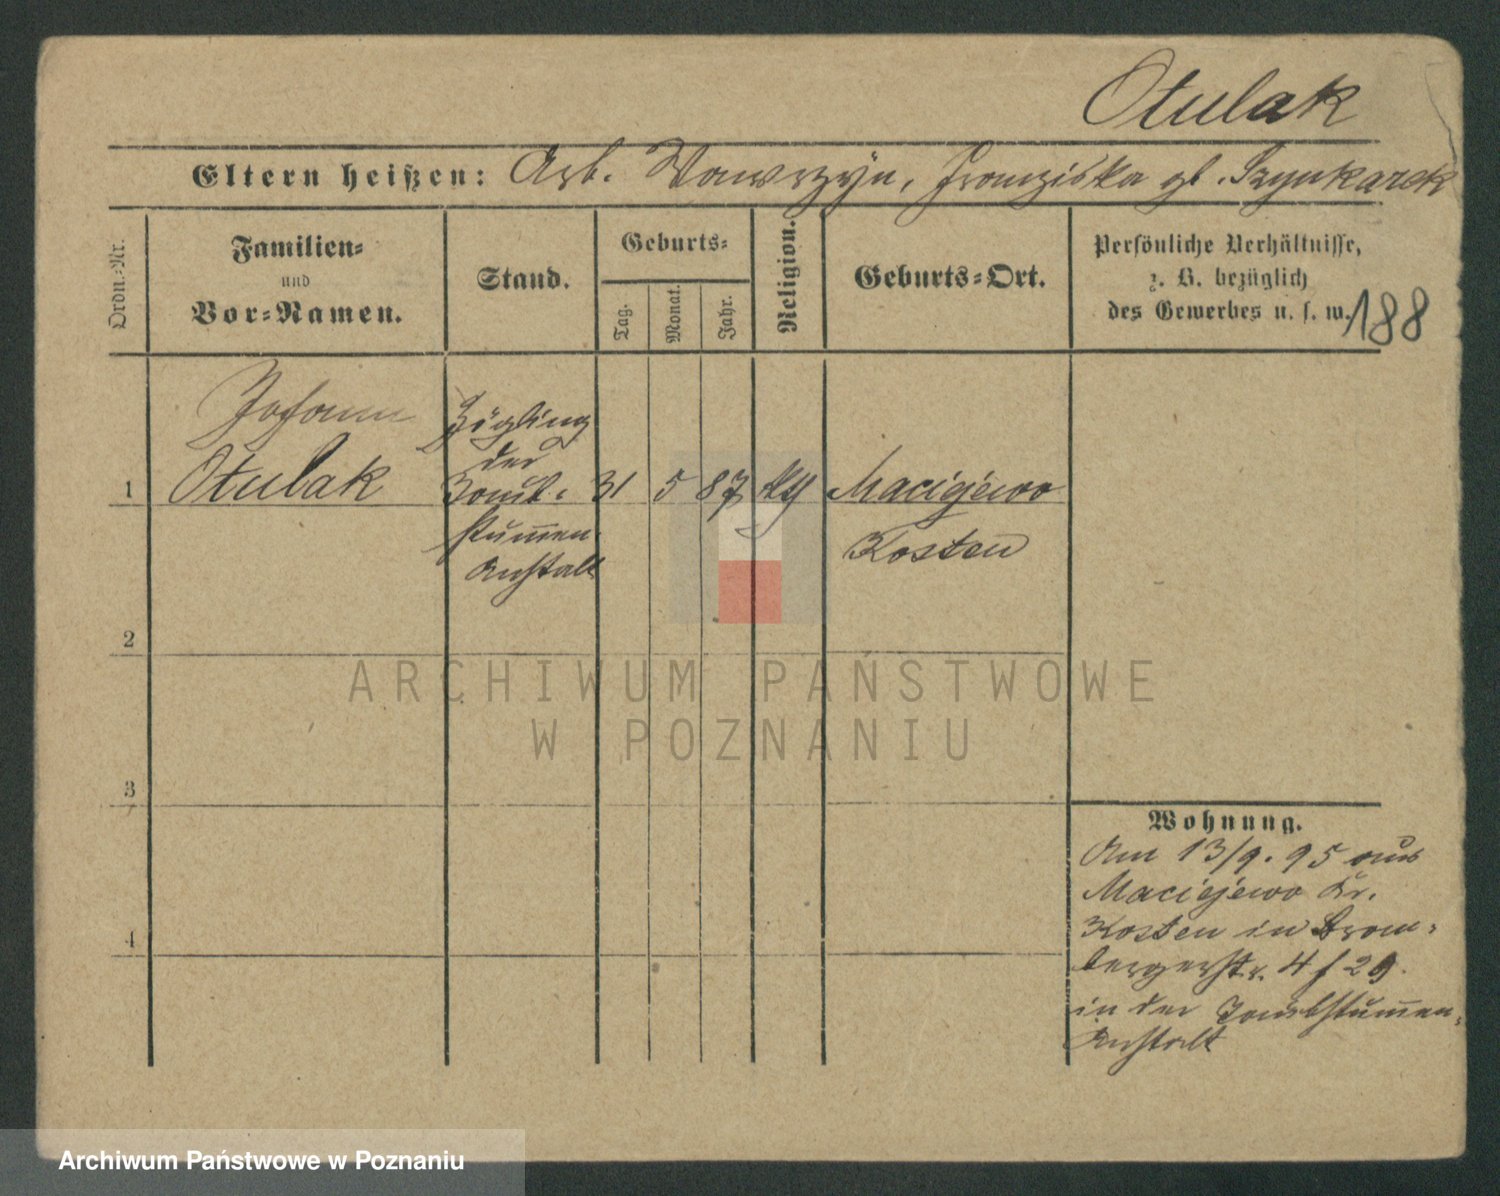 Otulak
Eltern heißen: Arb. Wawrzyn, Franziska gb. Szynkarek
Ordn.-Nr.
Familien-
und
Vor-Namen.
Stand.
Geburts-
Tag.
Monat.
Jahr.
Religion.
Geburts-Ort.
Persönliche Verhältnisse,
z. B. bezüglich
des Gewerbes u. s. w.
188
Johann
Otulak
Zögling
der
Taub-
stummen
Anstalt
1
31
5
87
Maciejewo
Kosten
2
3
4
Wohnung.
Am 13/9. 95 aus
Maciejewo Kr.
Kosten in Brom-
bergerstr. 4 f 29.
in der Taubstummen-
Anstalt
ARCHIWUM PAŃSTWOWE
W POZNANIU
Archiwum Państwowe w Poznaniu